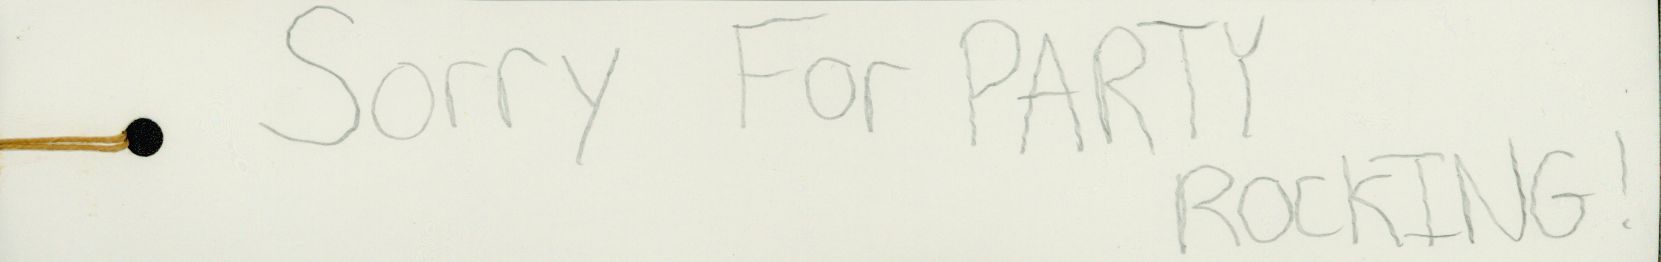 Sorry For PARTY
ROCKING!